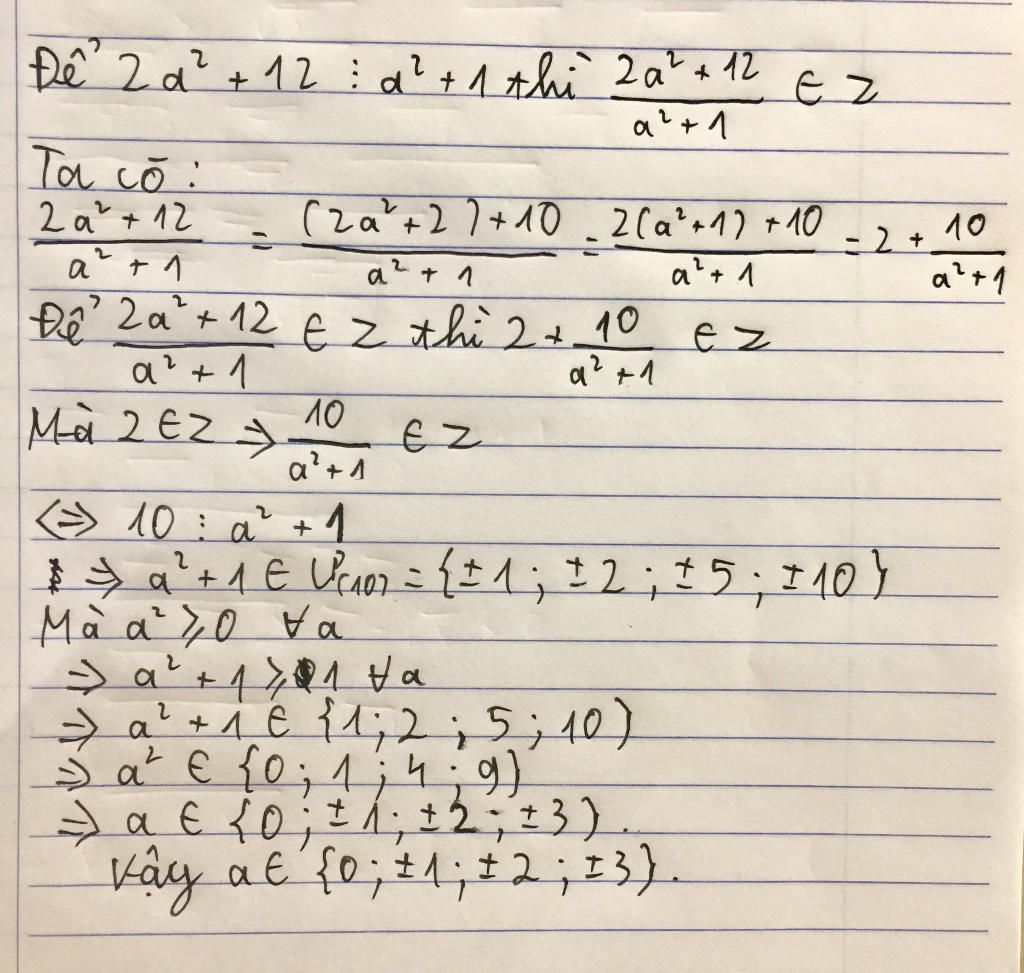 Để 2a² + 12 ⋮ a² + 1 thì (2a² + 12)/(a² + 1) ∈ Z
Ta có:
(2a² + 12)/(a² + 1) = ((2a² + 2) + 10)/(a² + 1) = (2(a² + 1) + 10)/(a² + 1) = 2 + 10/(a² + 1)
Để (2a² + 12)/(a² + 1) ∈ Z thì 2 + 10/(a² + 1) ∈ Z
Mà 2 ∈ Z ⇒ 10/(a² + 1) ∈ Z
⇔ 10 ⋮ a² + 1
⇒ a² + 1 ∈ Ư(10) = {±1; ±2; ±5; ±10}
Mà a² ≥ 0 ∀a
⇒ a² + 1 ≥ 1 ∀a
⇒ a² + 1 ∈ {1; 2; 5; 10}
⇒ a² ∈ {0; 1; 4; 9}
⇒ a ∈ {0; ±1; ±2; ±3}.
Vậy a ∈ {0; ±1; ±2; ±3}.